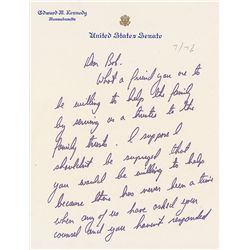 Edward M. Kennedy
Massachusetts
United States Senate
7/76
Dear Bob,
What a friend you are to
be willing to help the family
by serving as a trustee to the
family trusts. I suppose I
shouldn't be surprised that
you would be willing to help
because there has never been a time
when any of us have asked your
counsel and you haven't responded